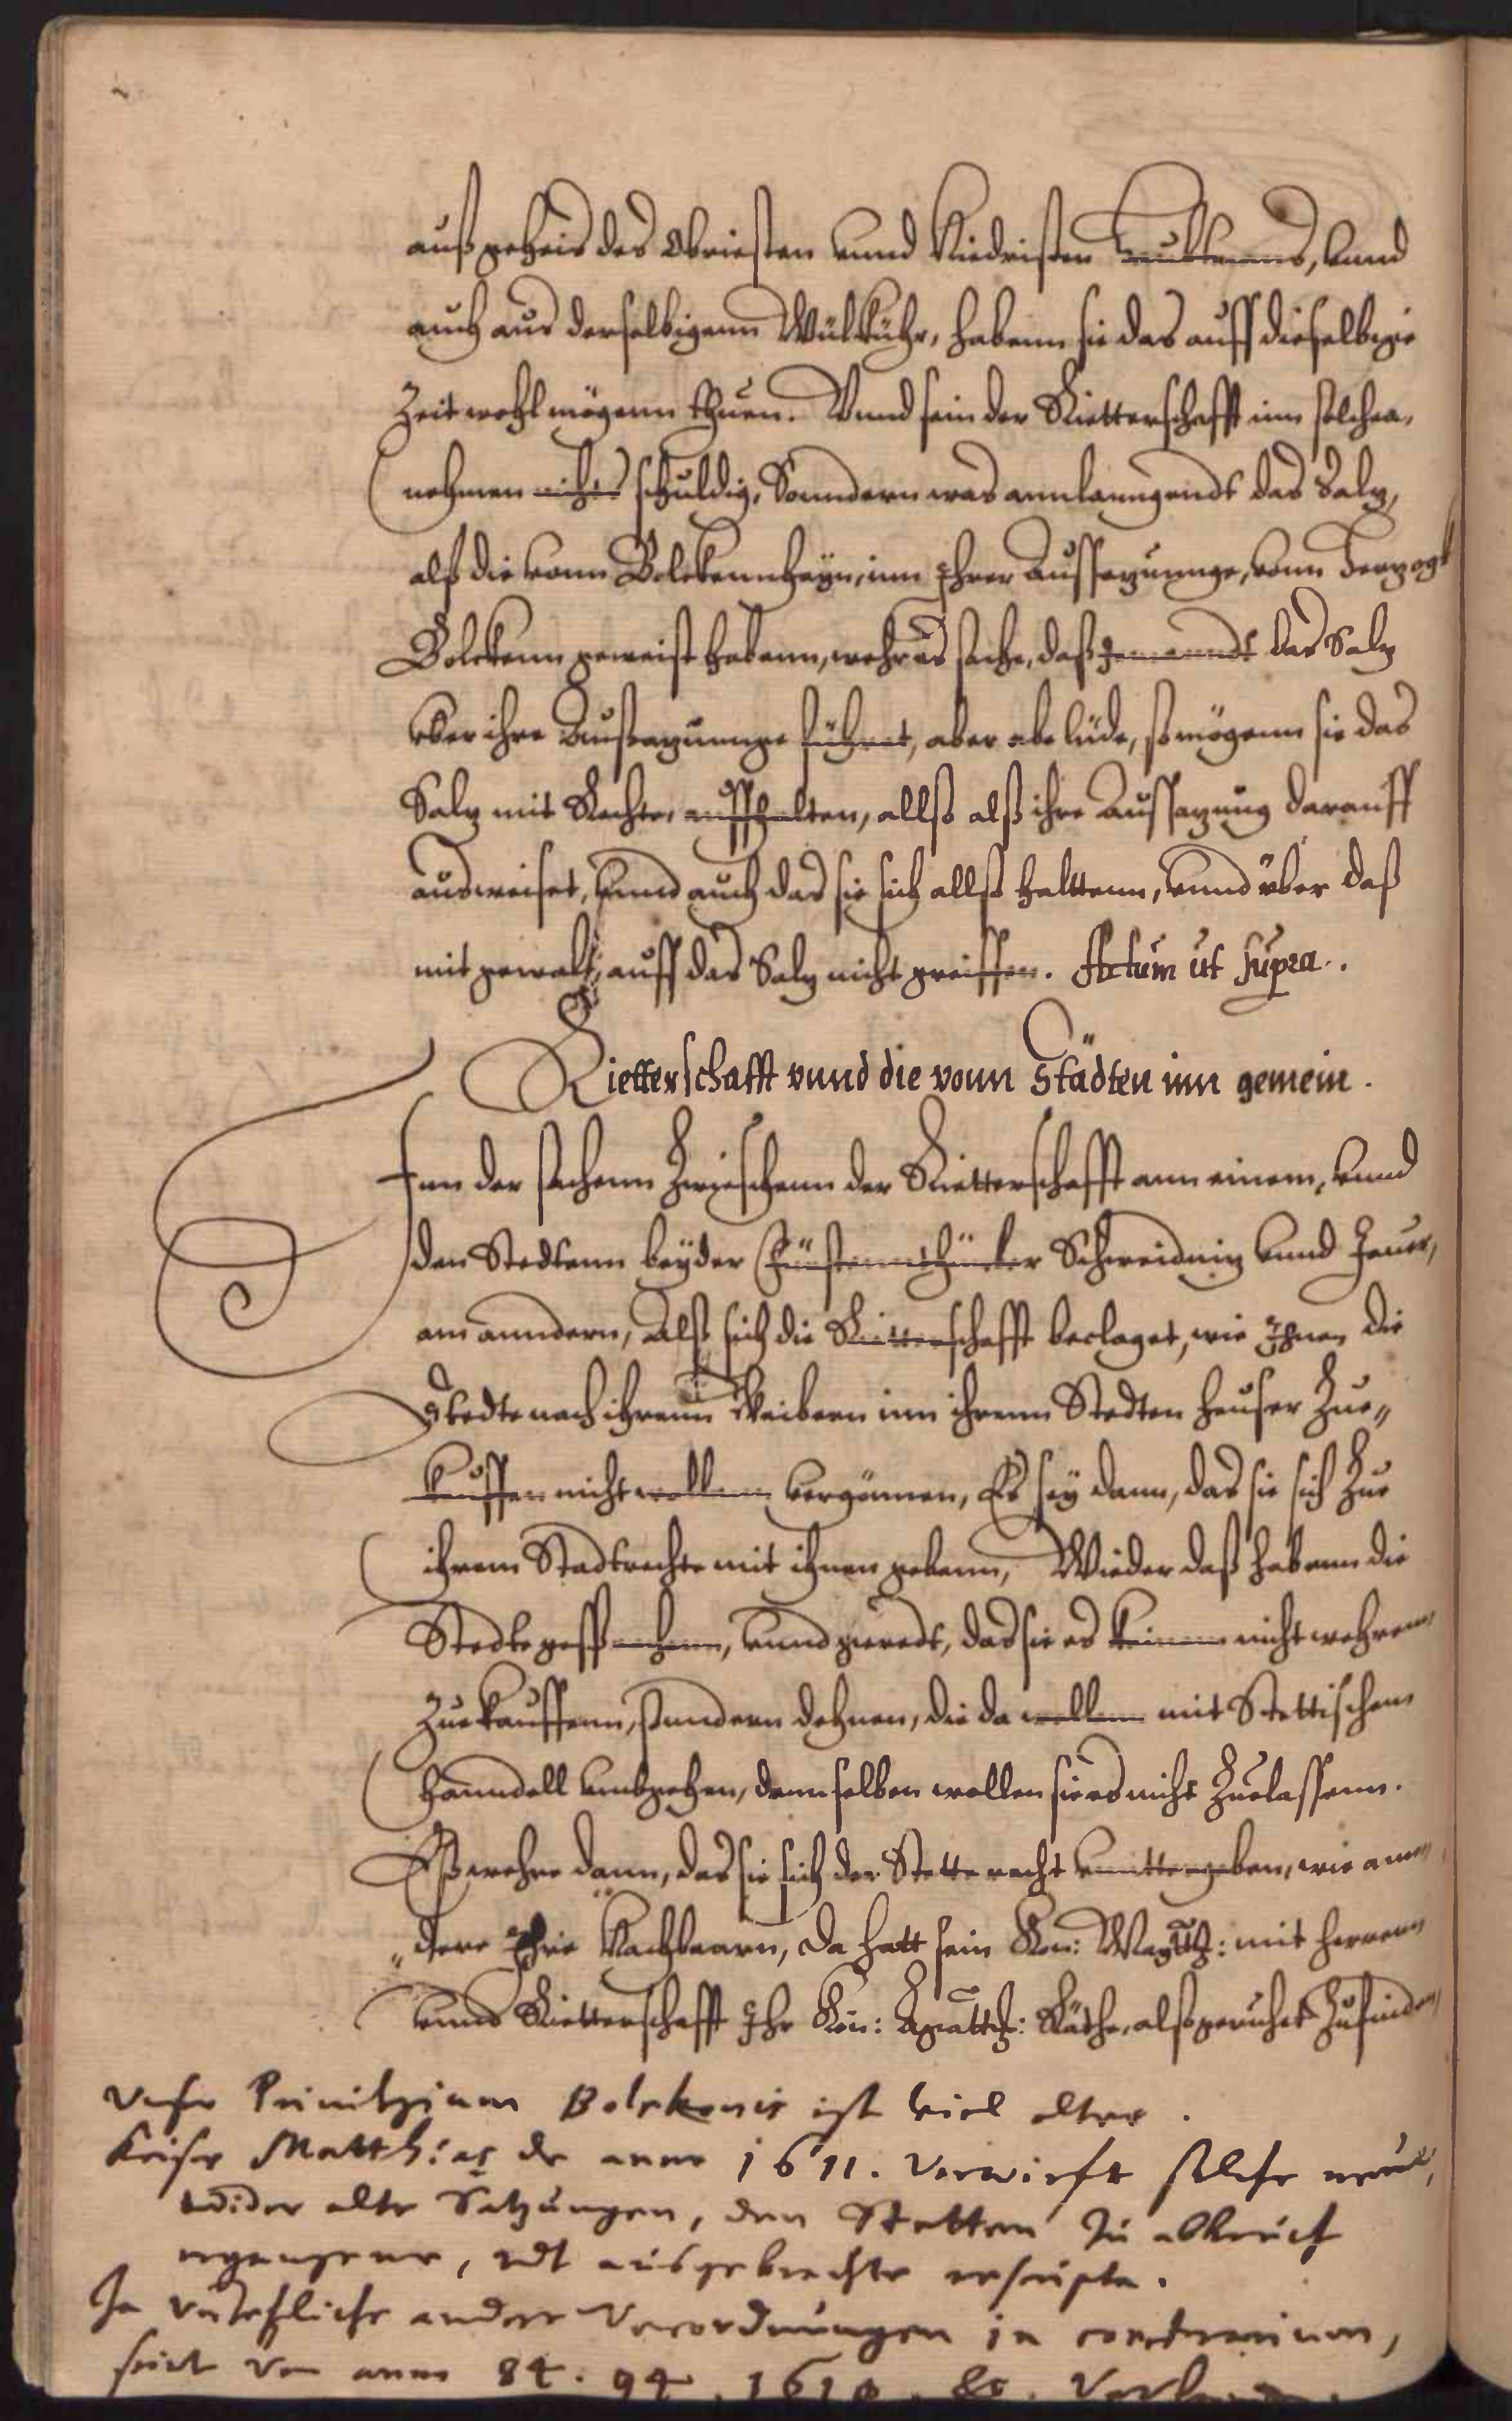 auß geheis des Obriesten vund Niedristen, vund
auch aus derselbigenn Wülkühr, habenn sie das auff dieselbige
Zeit wohl mögenn thuen. Vund sein der Rietterschafft inn solchen,
nehmen nichts schuldig, Sonndern was annlanngendt das Saltz,
alß die vonn Bolckennhayn, inn Ihrer Aussatzunnge, vonn Hertzogk
Bolckenn geweist habenn, wehr es sache, daß Jemanndt das Saltz
vber ihre Aussatzunnge führet, aber abe lüde, so mögenn sie das
Saltz mit Rechte, auffhalten, allß alß ihre Aussatzung darauff
ausweiset, vund auch das sie sich allß halttenn, vund über daß
mit gewalt, auff das Saltz nicht greiffen. Actum ut supra.
Rietterschafft vund die vonn Städten inn gemein.
Inn der sachenn Zwieschenn der Rietterschafft ann einem, vund
den Stedtenn beyder Fürstennthümber Schweidnitz vund Jauer,
am anndern, Alß sich die Rietterschafft beclaget, wie Ihnen die
Stedte nach ihrenn Weibern inn ihrenn Stedten heuser Zue„
kauffen nicht wollenn vergönnen, Es sey dann, das sie sich Zue
ihrem Stadtrechte mit ihnen gebenn, Wieder daß habenn die
Stedte gesprochenn, vund geredt, das sie es keinem nicht wehren
Zue kauffenn, sundern dehnen, die da wollenn mit Stettischem
hanndell umbgehen, dennselben wollen sie es nicht Zuelassenn.
Eß wehre dann, das sie sich der Stette recht vnttergeben, wie ann„
„dere Ihre Nachbaarn, Da hatt sein Kön: Maytt: mit Herren
vund Rietterschafft Ihr Kön: Maytt: Räthe, alß geruhet Zufinden
Unser Privilegium Bolckonis ist viel alter.
Keiser Matthias de anno 1611. Verwirft solche neue,
wider alte Satzungen, den Stetten zu abbruch
ergangene, odt ausgebrachte rescripta.
So andere Verordnungen in contrarium,
seint de anno 84. 94. 1610. &c.